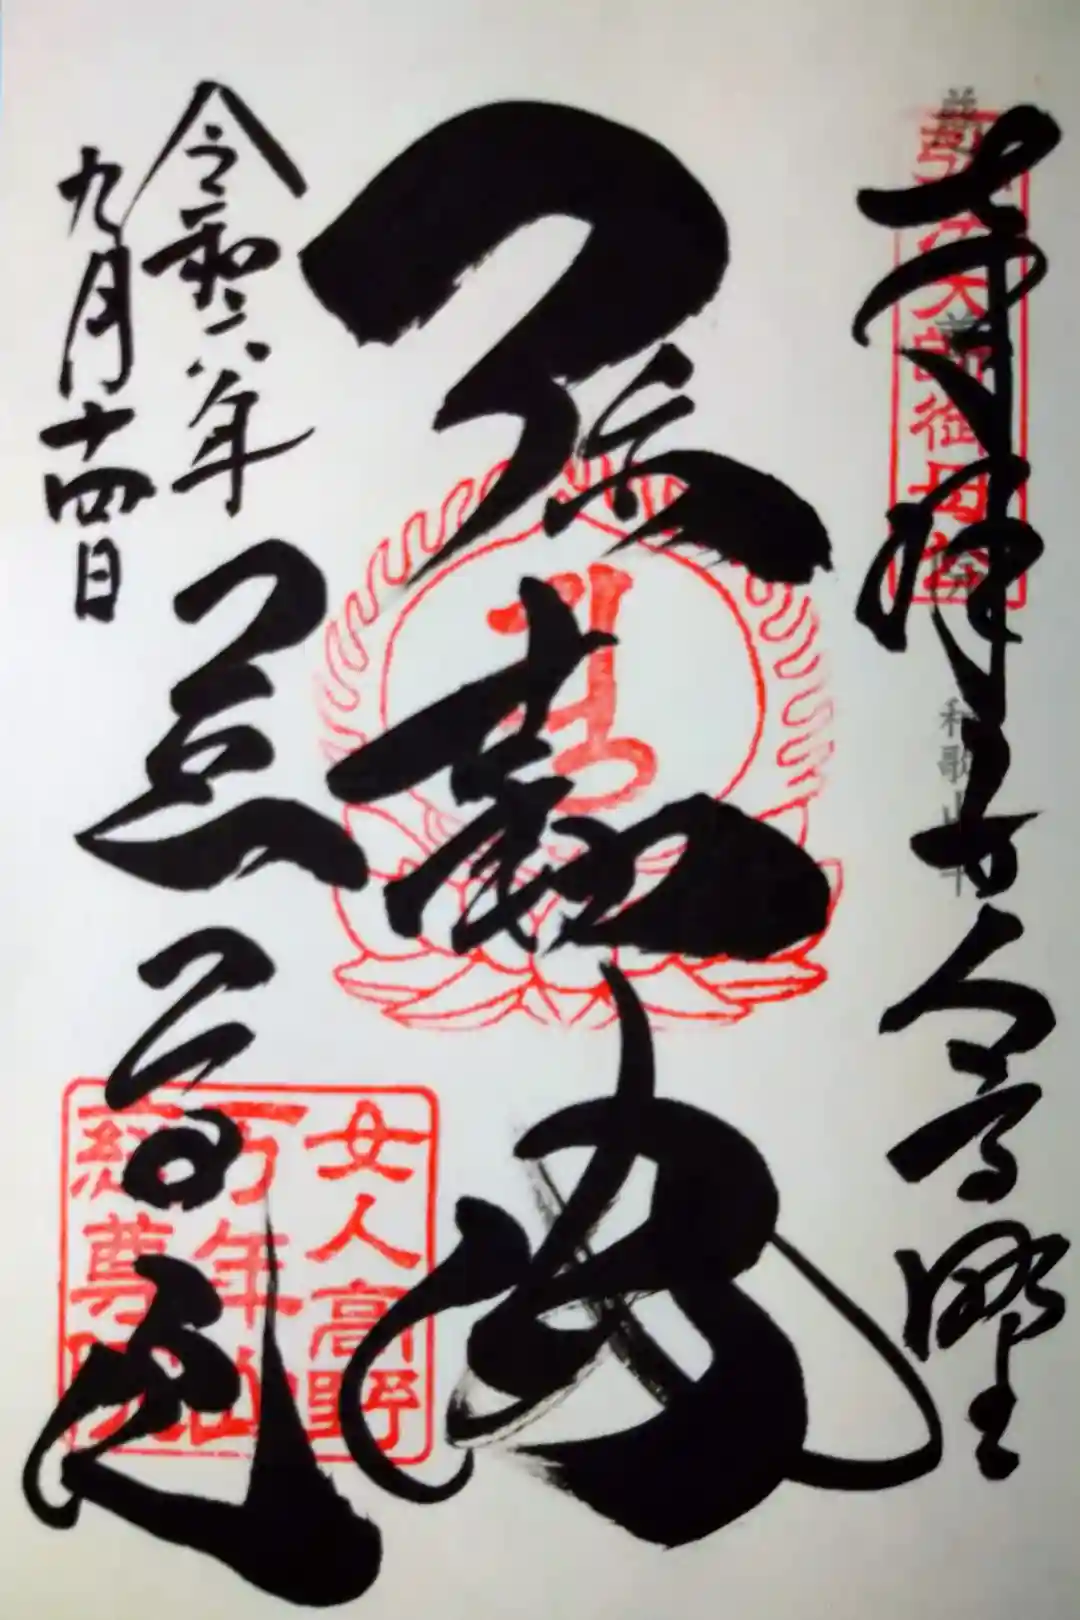 奉拝 女人高野
弘法大師御母公
弥勒佛
令和六年
九月十四日
慈尊院
女人高野
万年山
慈尊院
和歌山